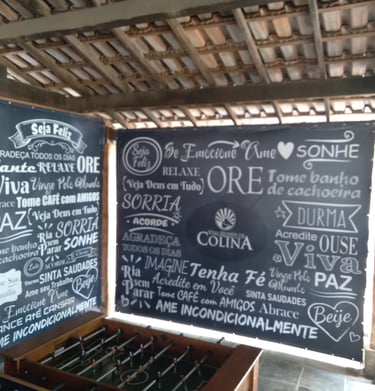 Seja Feliz
AGRADEÇA TODOS OS DIAS
RELAXE ORE
Viva
Viaje Pelo Mundo
Tome CAFÉ com AMIGOS
(Veja Deus em Tudo)
PAZ
SORRIA
SONHE
SINTA SAUDADES
Emocione Ame
Beije
DANCE ATÉ CANSAR
AME INCONDICIONALMENTE
Seja Feliz
Se Emocione Ame SONHE
RELAXE
(Veja Deus em Tudo)
ORE
Tome banho
de cachoeira
SORRIA
ACORDE
DURMA
COLINA
Acredite OUSE
AGRADEÇA
TODOS OS DIAS
Viva
IMAGINE
Tenha Fé
Viaje Pelo
Mundo
PAZ
Ria
Sem
Parar
Acredite em Você
SINTA SAUDADES
Tome CAFÉ com AMIGOS
Abrace
Beije
AME INCONDICIONALMENTE